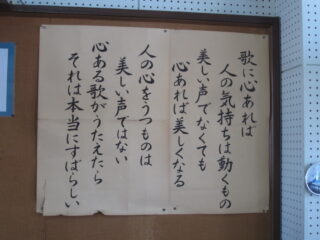 歌に心あれば
人の気持ちは動くもの
美しい声でなくても
心あれば美しくなる
人の心をうつものは
美しい声ではない
心ある歌がうたえたら
それは本当にすばらしい